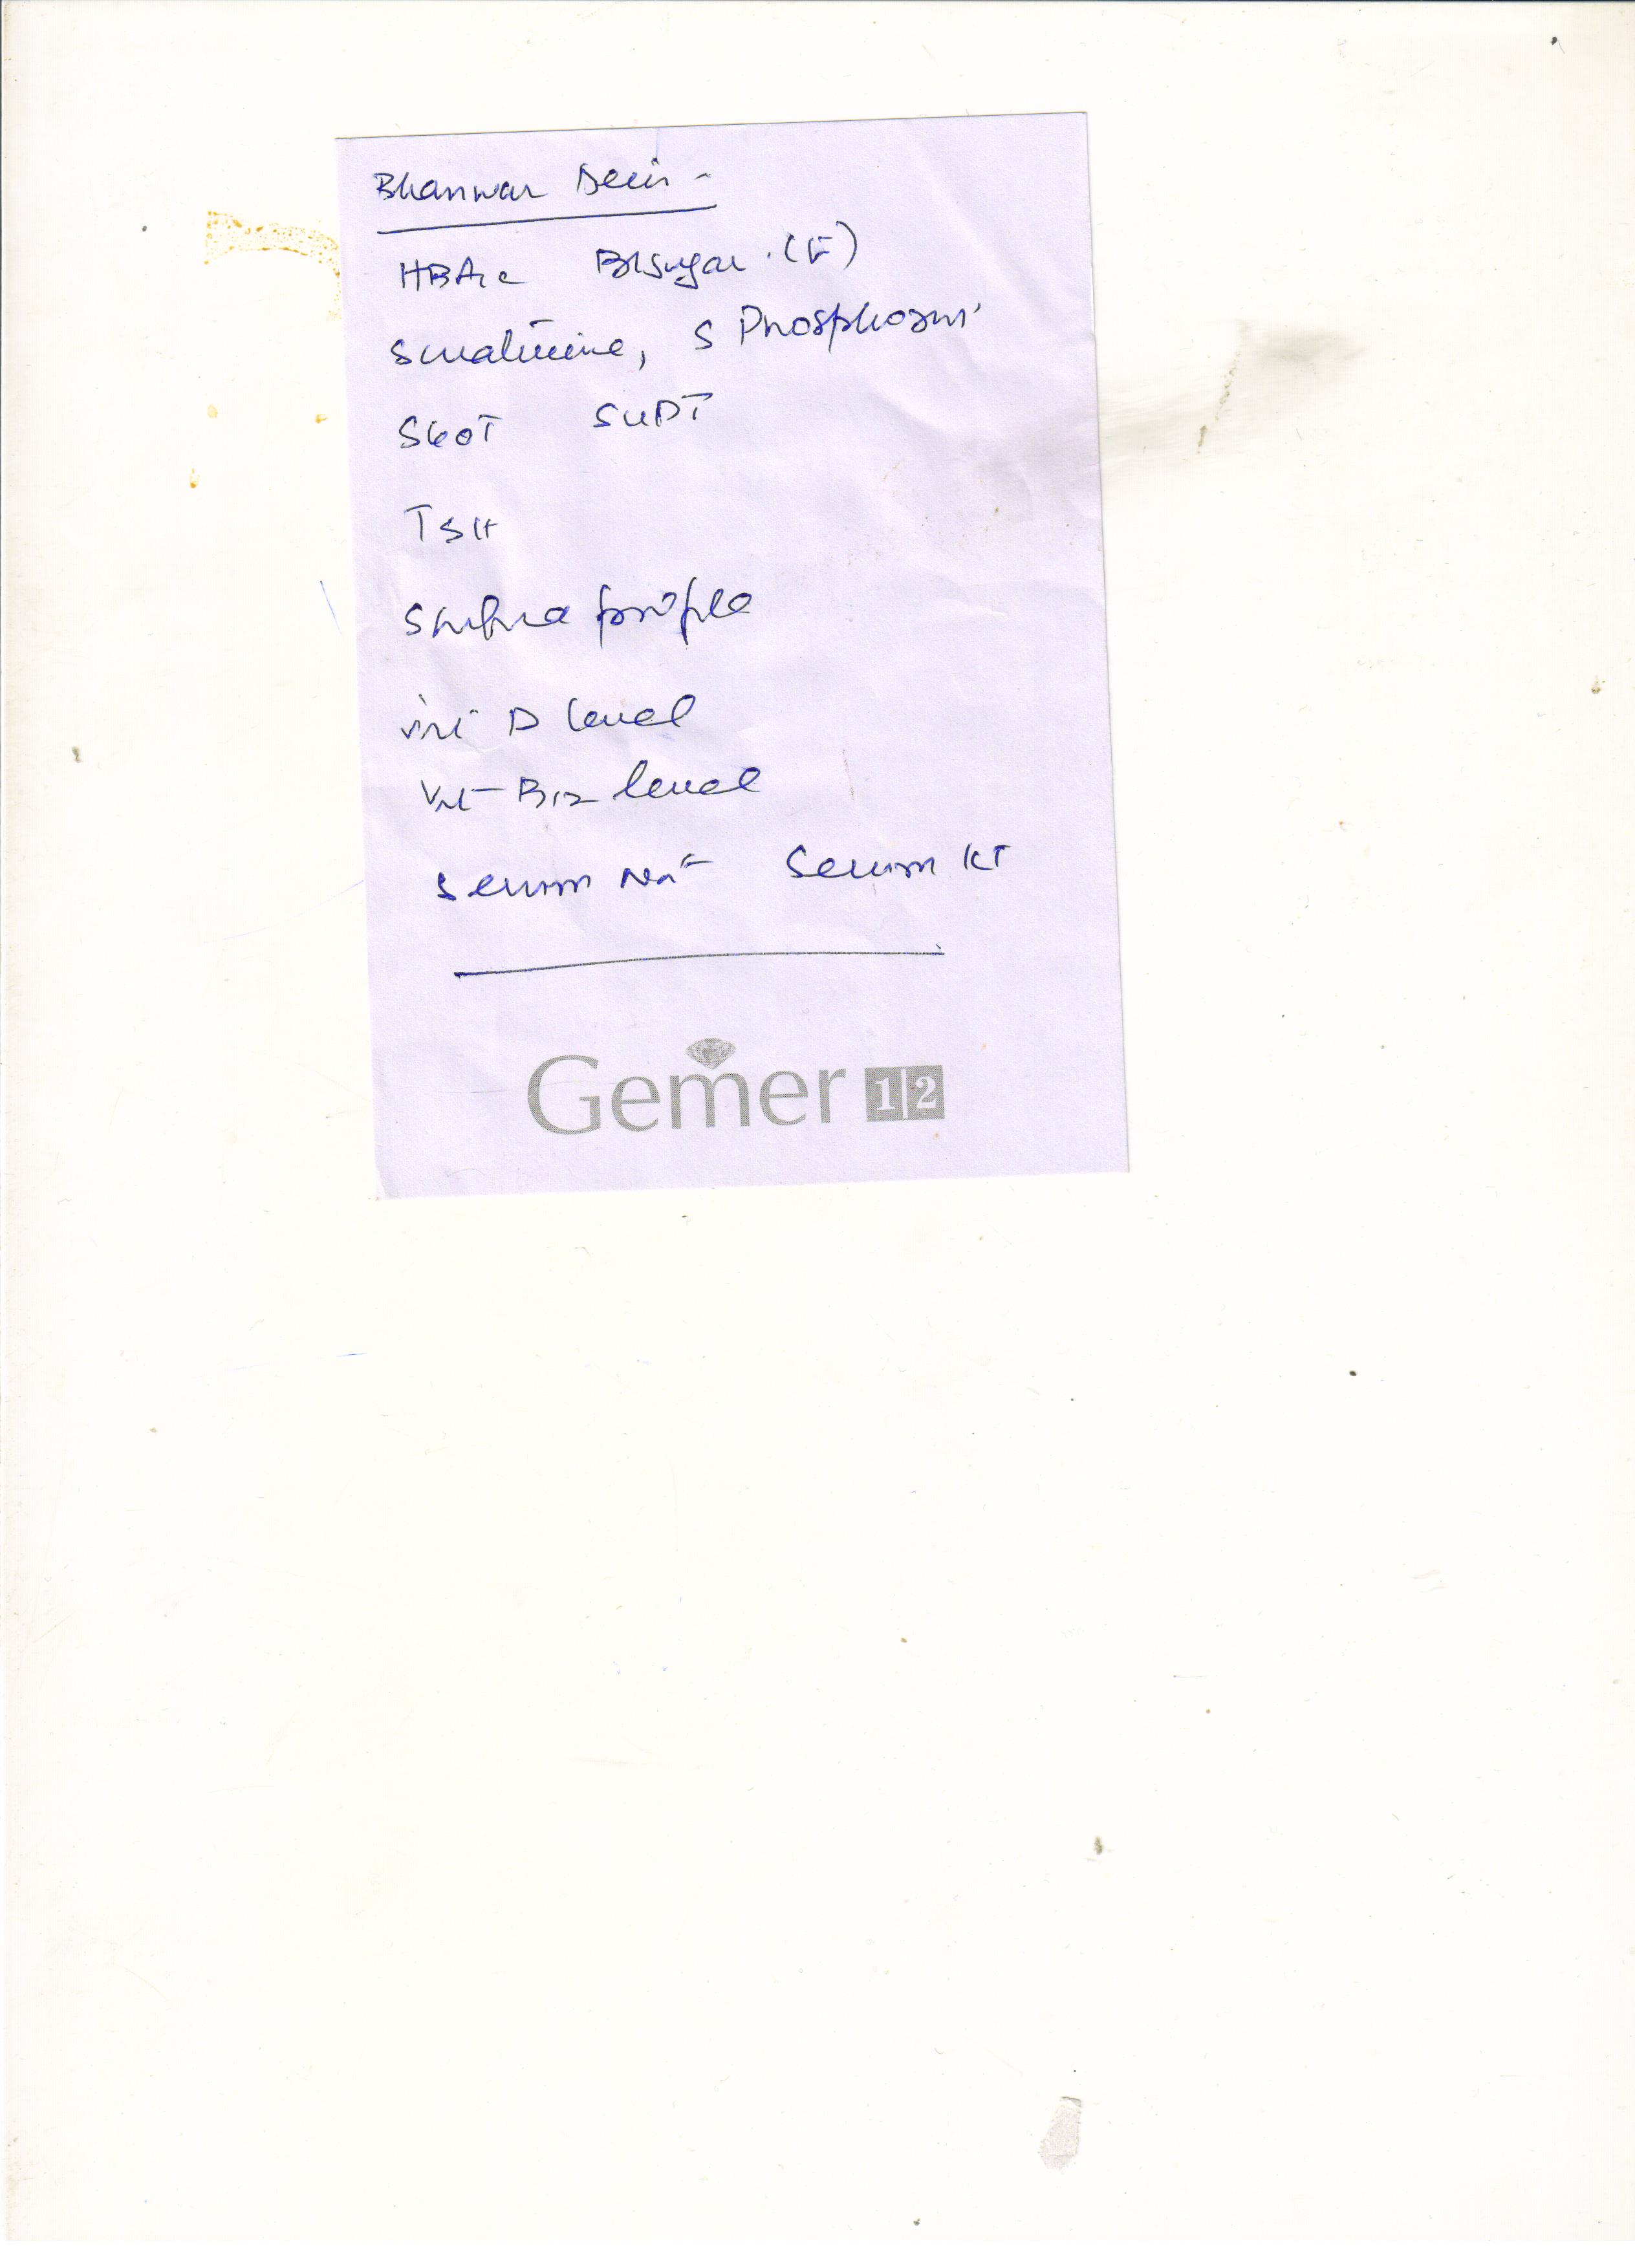 Bhanwar Devi -
HBA1c Bl sugar (F)
S creatinine, S Phosphorus
SGOT SGPT
TSH
S profile
Vit D level
Vit B12 level
Serum Na+ Serum K+
Gemer 1|2